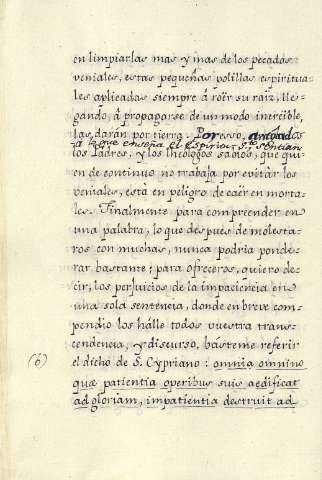 en limpiarlas mas y mas de los pecados
veniales, estas pequeñas polillas espiritua-
les aplicadas siempre â roër su raiz, lle-
gando â propagarse de un modo increible,
las darán por tierra. Por esso,
a lo que enseña el Espiritu Sto. sentian
los Padres, y los theologos sabios, que qui-
en de continuo no trabaja por evitar los
veniales, està en peligro de caër en morta-
les. Finalmente para comprender en
una palabra, lo que despues de molesta-
ros con muchas, nunca podria ponde-
rar bastante; para ofreceros, quiero de-
cir, los perjuicios de la impaciencia en
una sola sentencia, donde en breve com-
pendio los hàlle todos vuestra trans-
cendencia, y discurso, básteme referir
(6) el dicho de S. Cypriano: omnia omnino
quæ patientia operibus suis aedificat
ad gloriam, impatientia destruit ad